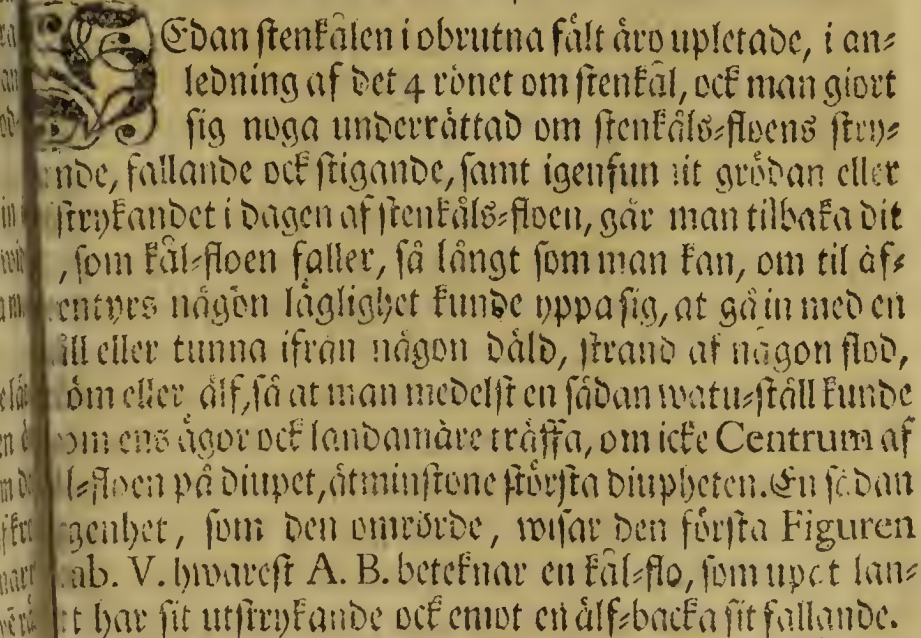 SEdan stenkålen i obrutna fält äro upletade, i an⸗
ledning af det 4 rönet om stenkål, ock man giort
sig noga underrättad om stenkåls⸗floens stry⸗
nde, fallande ock stigande, samt igenfun it grödan eller
strykandet i dagen af stenkåls⸗floen, går man tilbaka dit
, som kål⸗floen faller, så långt som man kan, om til äf⸗
entyrs någon läglighet kunde yppa sig, at gå in med en
äll eller tunna ifrån någon dåld, strand af någon flod,
öm eller älf, så at man medelst en sådan watu⸗ställ kunde
om ens ägor ock landamäre träffa, om icke Centrum af
l⸗floen på diupet, åtminstone största diupheten. En sådan
genhet, som den omrörde, wisar den första Figuren
ab. V. hwarest A. B. beteknar en kål⸗flo, som upåt lan⸗
et har sit utstrykande ock emot en älf⸗backa sit fallande.